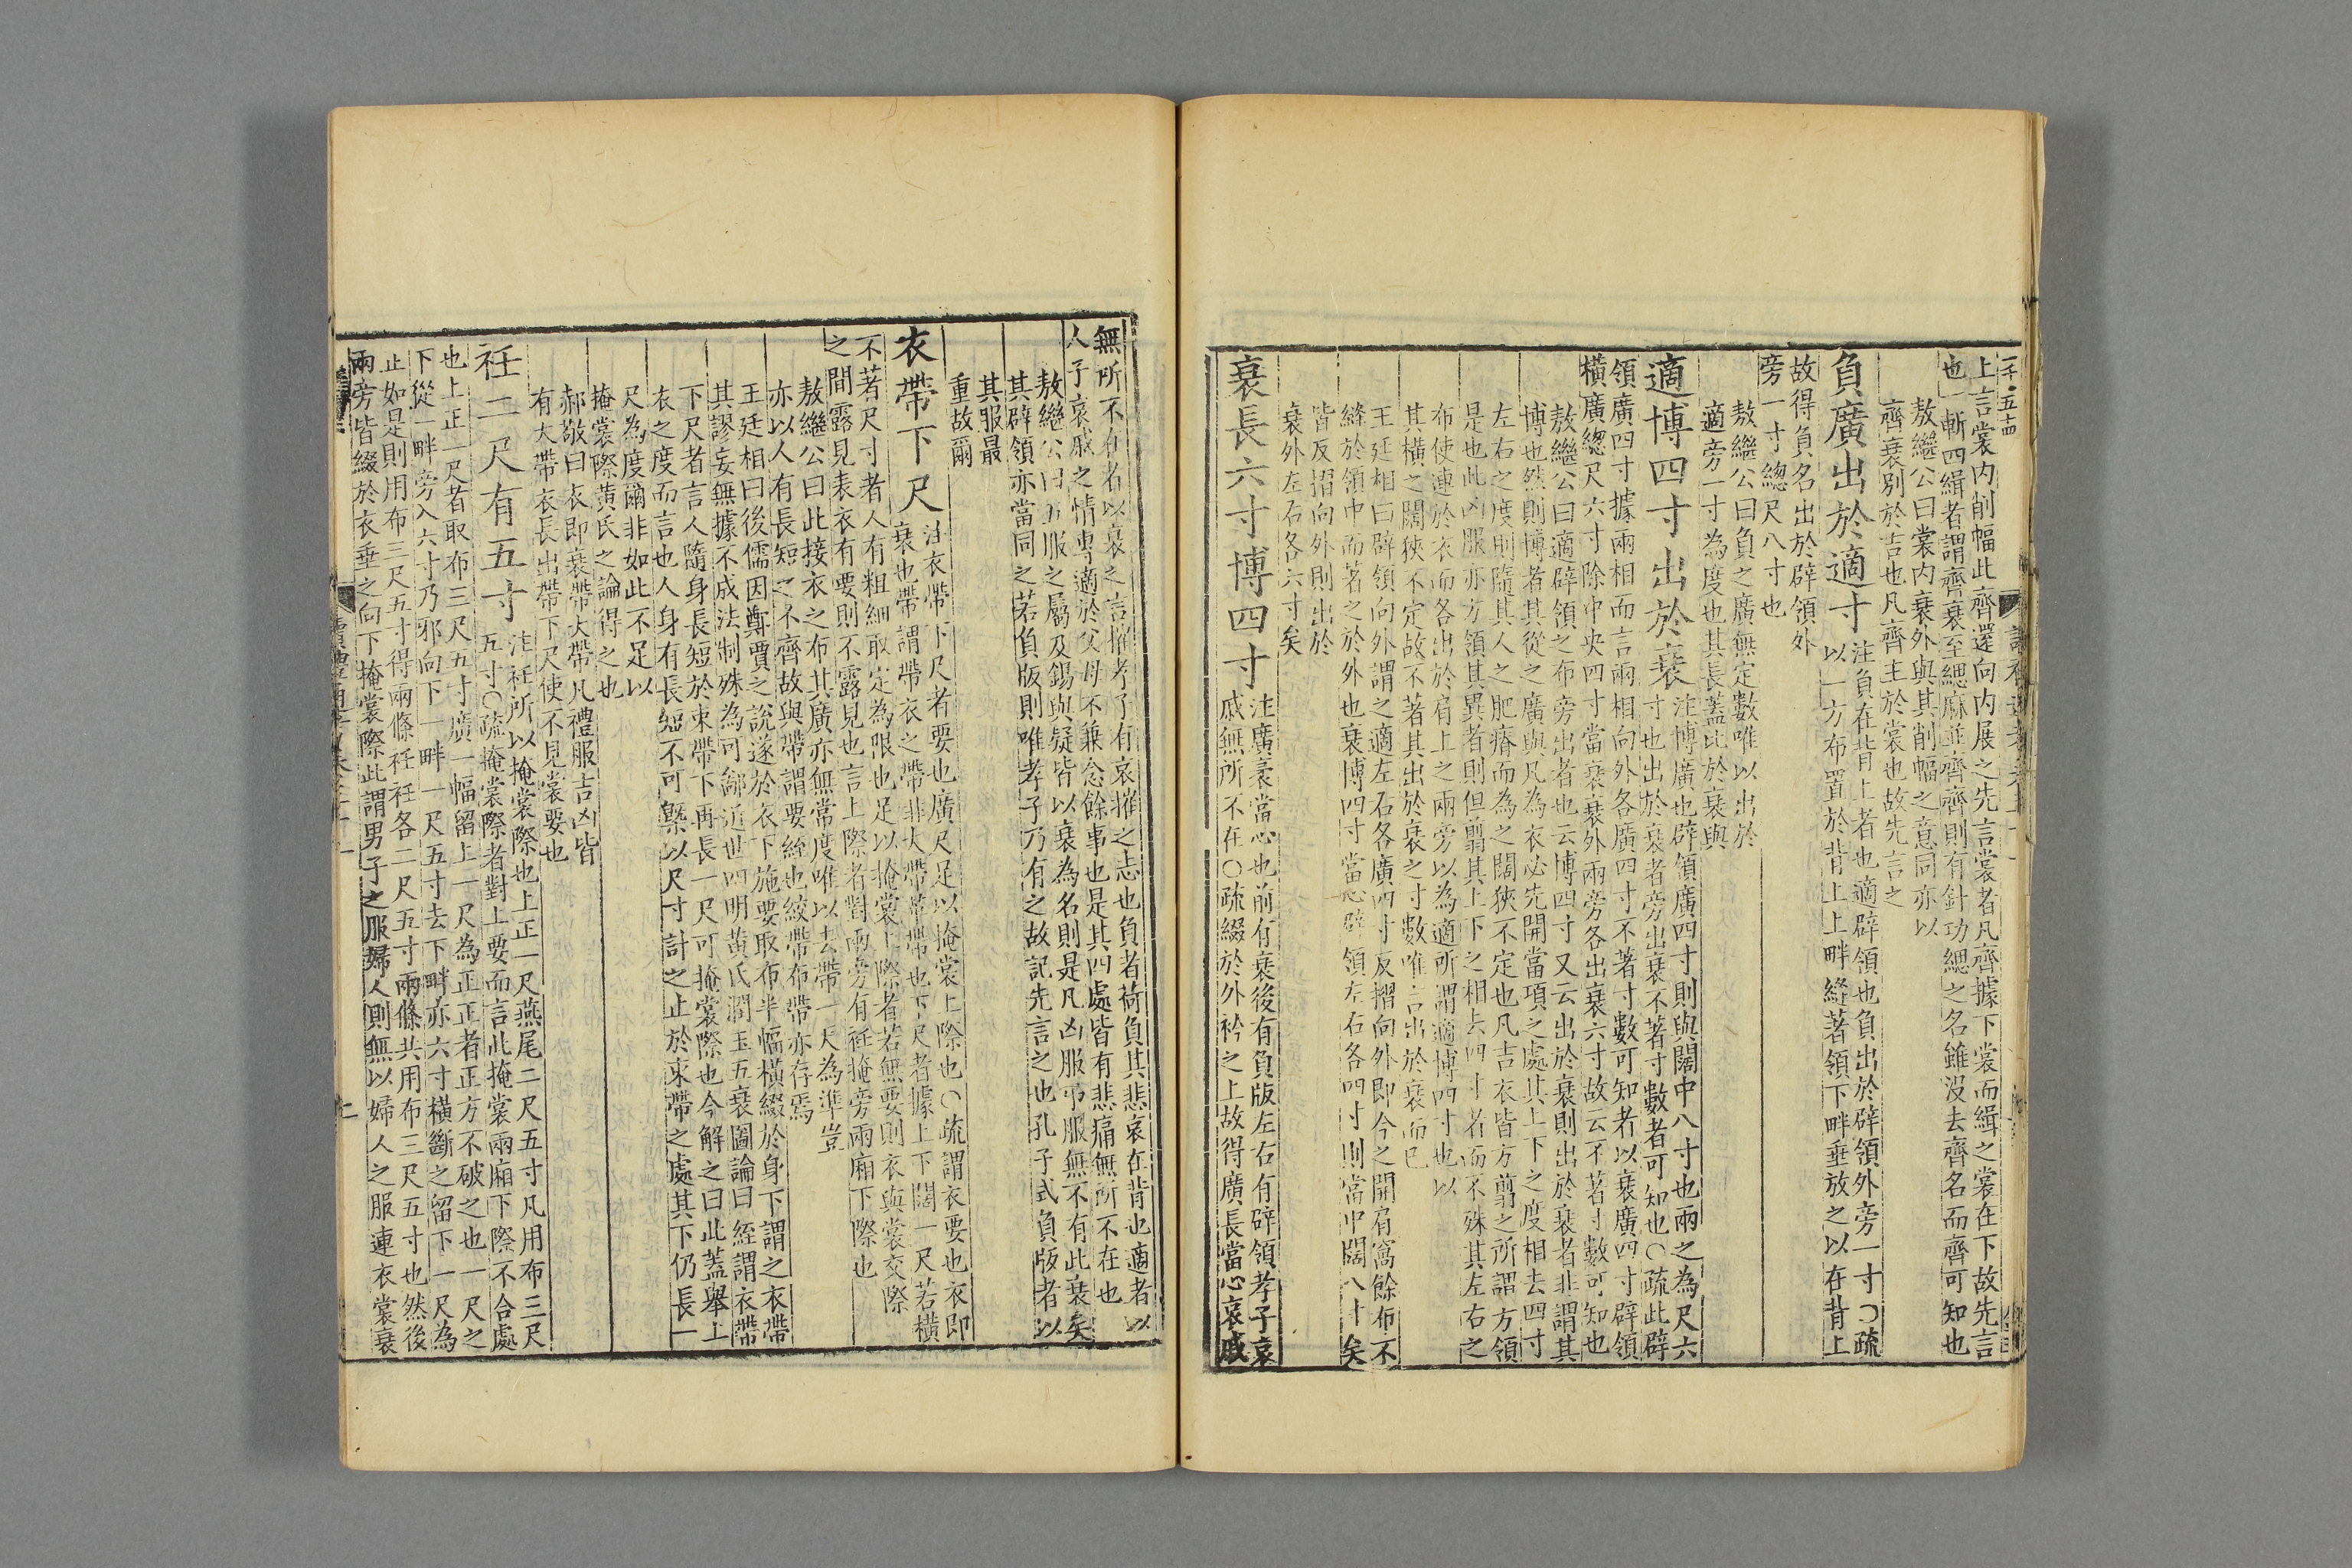 上言裳内削幅此齊還向内展之先言裳者凡齊據下裳而緝之裳在下故先言
也一斬四緝者謂齊衰至緦麻並齊齊則有針功緦之名雖没去齊名而齊可知也
敖繼公曰裳内衰外與其削幅之意同亦以
齊衰别於吉也凡齊主於裳也故先言之
負廣出於適寸
注負在背上者也適辟領也負出於辟領外旁一寸○疏
以一方布置於背上上畔縫著領下畔垂放之以在背上
故得負名出於辟領外
旁一寸總尺八寸也
敖繼公曰負之廣無定數唯以出於
適旁一寸為度也其長蓋比於衰與
適博四寸出於衰
注博廣也辟領廣四寸則與闊中八寸也兩之為尺六
寸也出於衰者旁出衰不著寸數者可知也○疏此辟
領廣四寸據兩相而言兩相向外各廣四寸不著寸數可知者以衰廣四寸辟領
橫廣總尺六寸除中央四寸當衰衰外兩旁各出衰六寸故云不著寸數可知也
敖繼公曰適辟領之布旁出者也云博四寸又云出於衰則出於衰者非謂其
博也然則博者其從之廣與凡為衣必先開當項之處其上下之度相去四寸
左右之度則隨其人之肥瘠而為之闊狹不定也凡吉衣皆方翦之所謂方領
是也此凶服亦方領其異者則但翦其上下之相去四寸者而不殊其左右之
布使連於衣而各出於肩上之兩旁以為適所謂適博四寸也以
其橫之闊狹不定故不著其出於衰之寸數唯言出於衰而已
王廷相曰辟領向外謂之適左右各廣四寸反摺向外即今之開肩窩餘布不
縫於領中而著之於外也衰博四寸當心辟領左右各四寸則當中闊八寸矣
皆反摺向外則出於
衰外左右各六寸矣
衰長六寸博四寸
注廣袤當心也前有衰後有負版左右有辟領孝子哀
戚無所不在○疏綴於外衿之上故得廣長當心哀戚
無所不在者以衰之言摧孝子有哀摧之志也負者荷負其悲哀在背也適者以
人子哀戚之情専適於父母不兼念餘事也是其四處皆有悲痛無所不在也
敖繼公曰五服之屬及錫與疑皆以衰為名則是凡凶服弔服無不有此衰矣
其辟領亦當同之若負版則唯孝子乃有之故記先言之也孔子式負版者以
其服最
重故爾
衣帶下尺
注衣帶下尺者要也廣尺足以掩裳上際也○疏謂衣要也衣即
衰也帶謂帶衣之帶非大帶革帶也下尺者據上下闊一尺若橫
不著尺寸者人有粗細取定為限也足以掩裳上際者若無要則衣與裳交際
之間露見表衣有要則不露見也言上際者對兩旁有衽掩旁兩廂下際也
敖繼公曰此接衣之布其廣亦無常度唯以去帶一尺為準豈
亦以人有長短之不齊故與帶謂要絰也絞帶布帶亦存焉
王廷相曰後儒因鄭賈之説遂於衣下施要取布半幅橫綴於身下謂之衣帶
其謬妄無據不成法制殊為可鄙近世四明黄氏潤玉五衰圖論曰絰謂衣帶
下尺者言人隨身長短於束帶下再長一尺可掩裳際也今解之曰此蓋舉上
衣之度而言也人身有長短不可槩以尺寸計之止於束帶之處其下仍長一
尺為度爾非如此不足以
掩裳際黄氏之論得之也
郝敬曰衣即衰帶大帶凡禮服吉凶皆
有大帶衣長出帶下尺使不見裳要也
衽二尺有五寸
注衽所以掩裳際也上正一尺燕尾二尺五寸凡用布三尺
五寸○疏掩裳際者對上要而言此掩裳兩廂下際不合處
也上正一尺者取布三尺五寸廣一幅留上一尺為正正者正方不破之也一尺之
下從一畔旁入六寸乃邪向下一畔一尺五寸去下畔亦六寸橫斷之留下一尺為
正如是則用布三尺五寸得兩條衽衽各二尺五寸兩條共用布三尺五寸也然後
兩旁皆綴於衣垂之向下掩裳際此謂男子之服婦人則無以婦人之服連衣裳衰